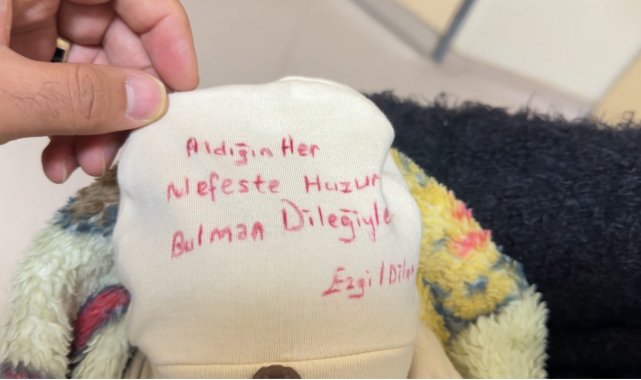 Aldığın Her
Nefeste Huzur
Bulman Dileğiyle
Ezgi / Dilan